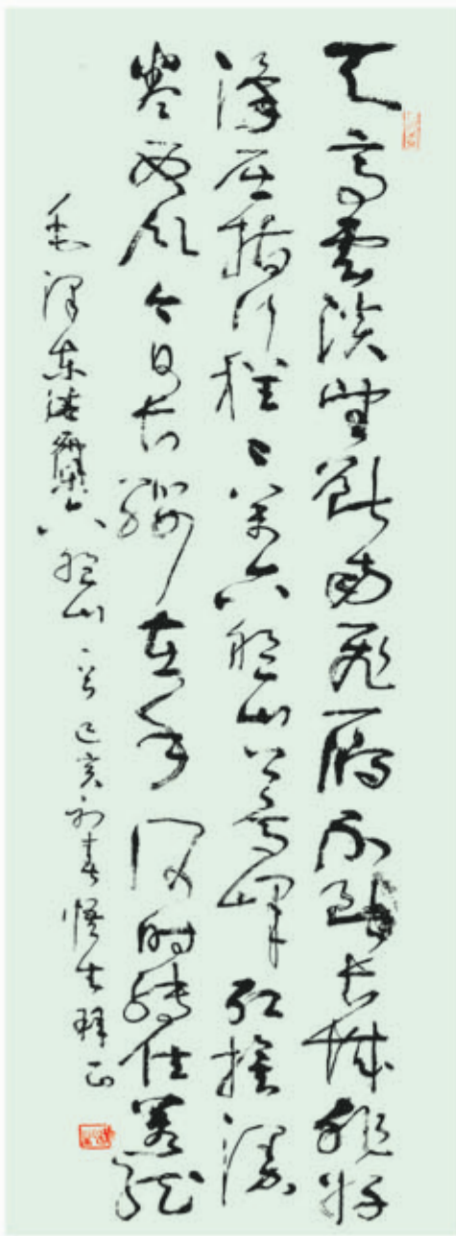 天高雲淡望断南飛雁不到长城非好
漢屈指行程二萬六盤山上高峰红旗漫
卷西风今日长缨在手何时缚住苍龙
毛澤东清平樂六盤山一首己亥初春